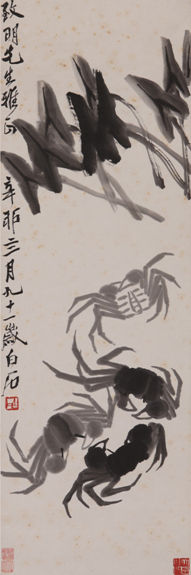 致明先生雅正
辛卯三月九十一歲白石